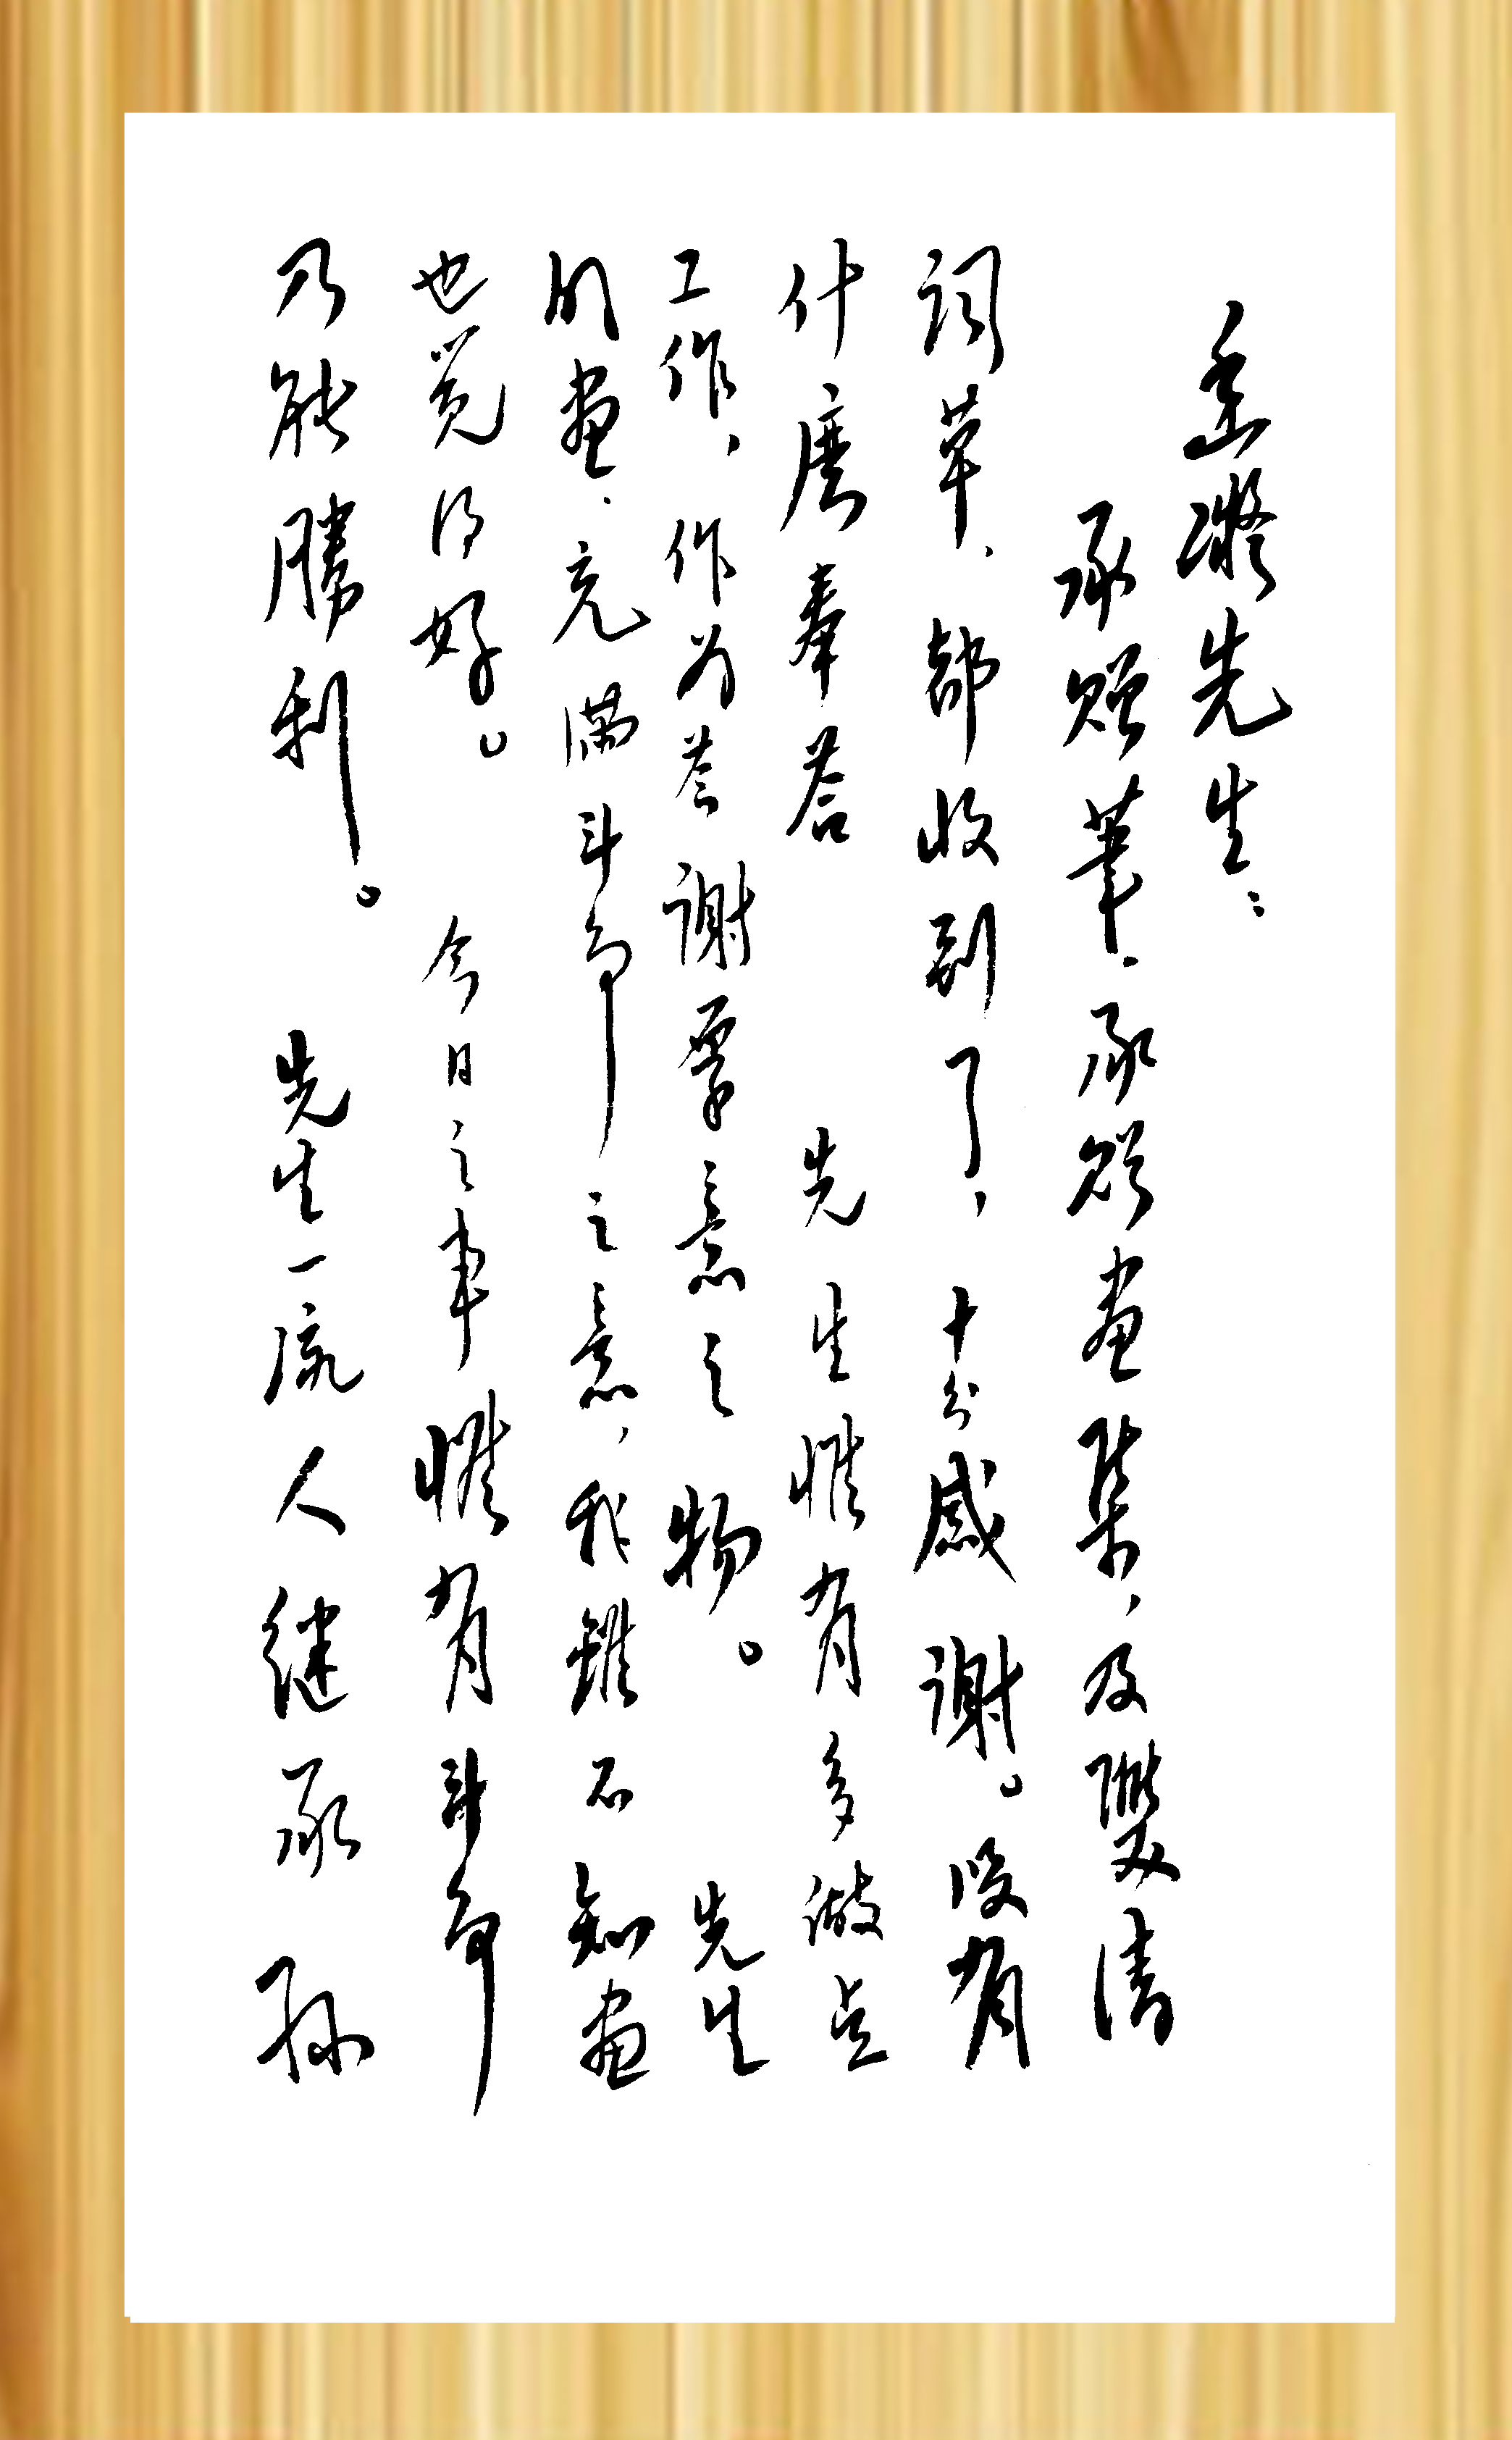 香凝先生：
承赠笔，承赠画集，及双清
词草，都收到了，十分感谢。没有
什麽奉答 先生惟有多做点
工作，作为答谢厚意之物。先生
的画，充满斗争之意，我虽不知画
也觉得好。今日之事惟有斗争
乃能勝利。先生一流人继承孙